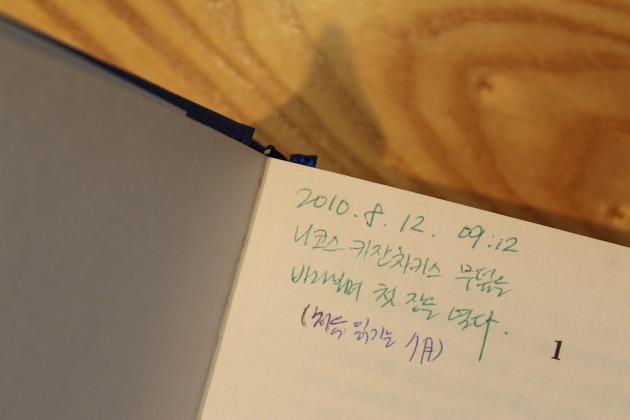 2010. 8. 12. 09:12
니코스 카잔차키스 무덤을
바라보며 첫 장을 열다.
(처음 읽기는 1月)
1